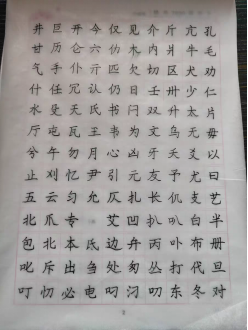 井 巨 开 今 仅 见 介 斤 亢 孔
甘 历 仑 六 仂 木 内 爿 牛 毛
气 手 仆 亓 匹 欠 切 区 犬 劝
什 任 冗 认 仍 日 壬 卅 少 仁
水 殳 天 氏 书 闩 双 升 太 片
厅 屯 瓦 王 韦 为 文 乌 无 毋
兮 午 勿 月 心 凶 牙 夭 爻 以
止 刈 忆 尹 引 元 友 予 尤 曰
五 云 匀 允 仄 扎 长 仉 支 艺
北 爪 专 艾 凹 叭 扒 白 半
包 北 本 氐 边 弁 丙 卟 布 册
叱 斥 出 刍 处 匆 丛 打 代 旦
叮 忉 必 电 叼 刁 叨 东 冬 对